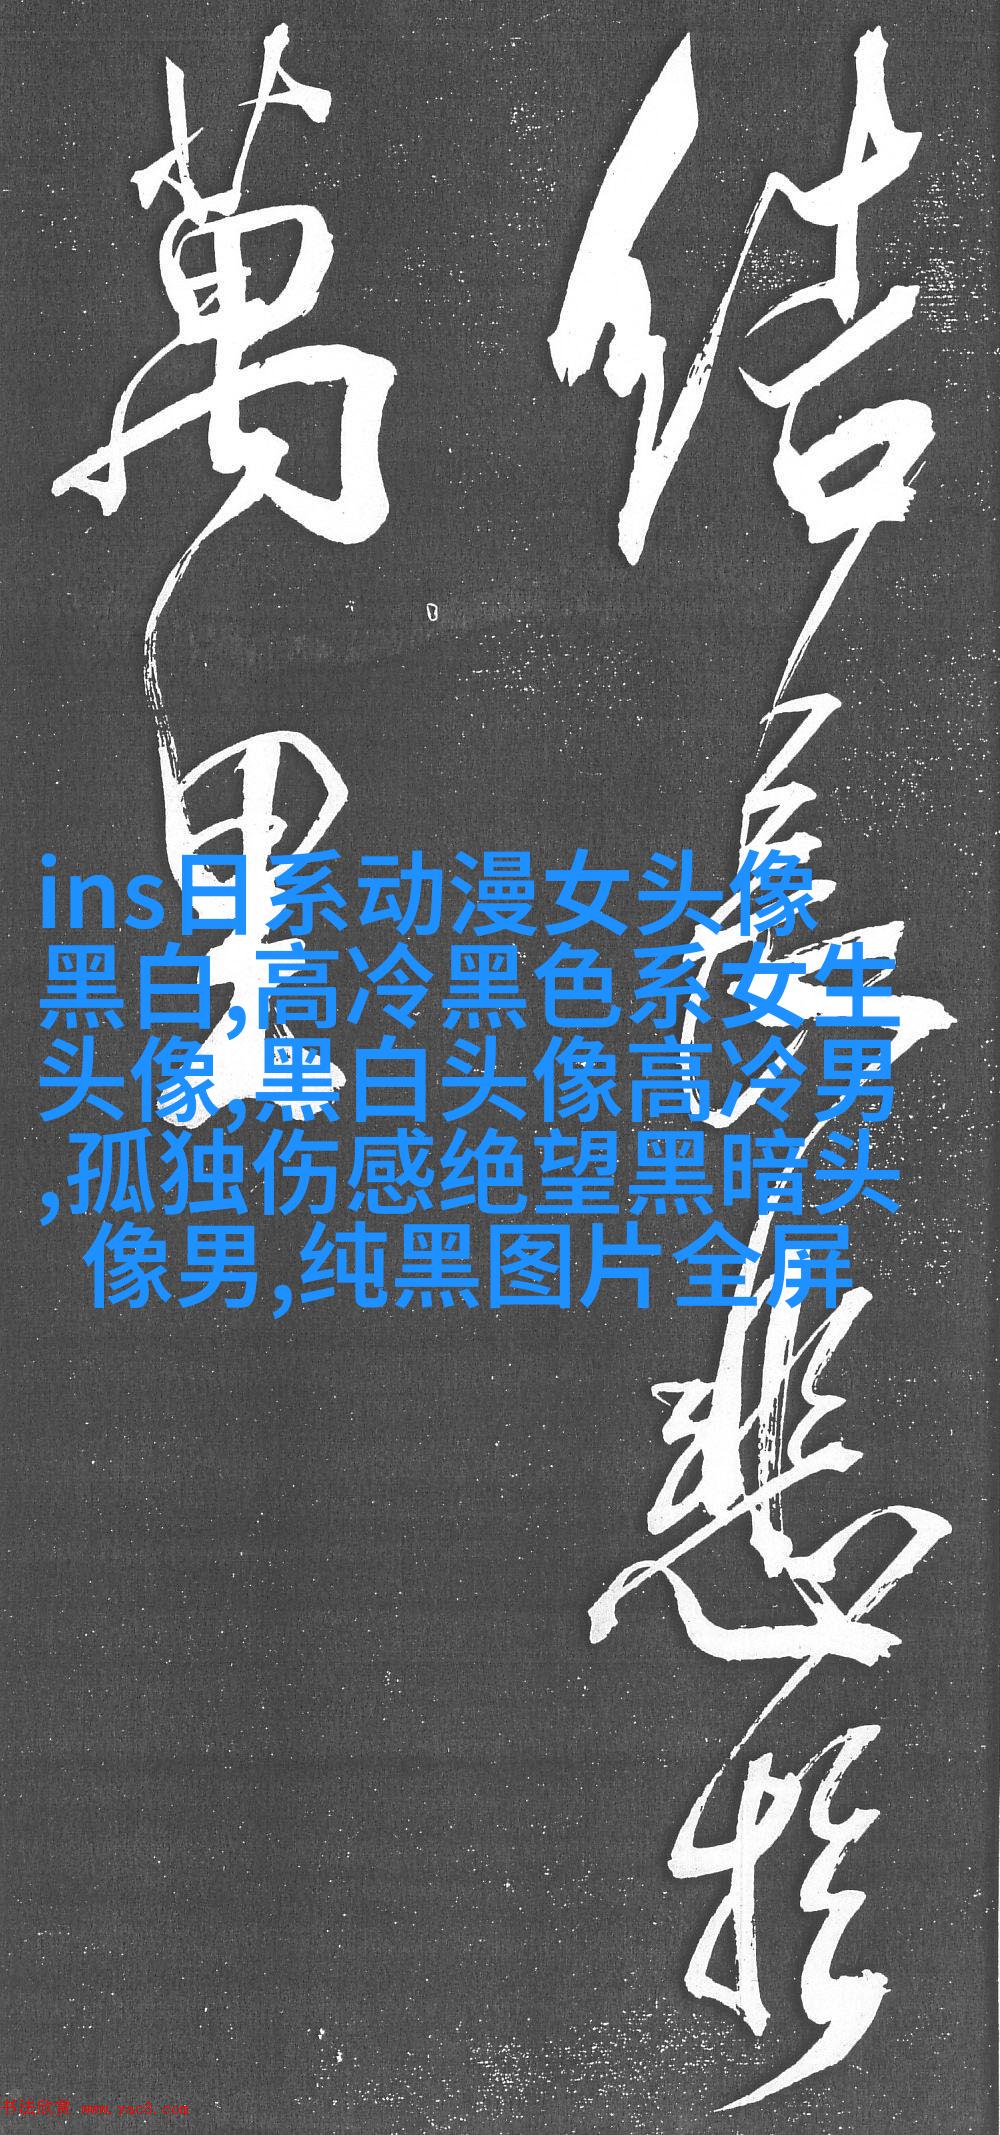 結長悲於
萬里
ins日系动漫女头像
黑白,高冷黑色系女生
头像,黑白头像高冷男
,孤独伤感绝望黑暗头
像男,纯黑图片全屏
书法欣赏 www.yac8.com